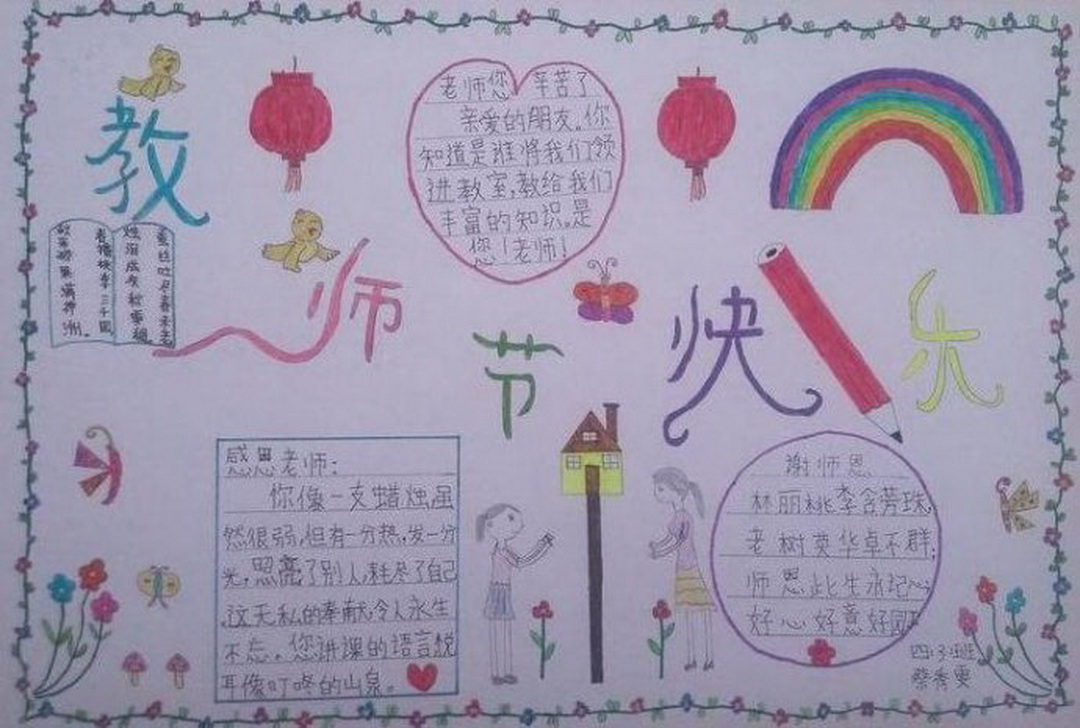 教师节快乐
老师您辛苦了
亲爱的朋友。你
知道是谁将我们领
进教室,教给我们
丰富的知识。是
您!老师!
春蚕吐尽春未老
烛泪成灰秋更稠
春播桃李三千圃
秋来硕果满神
洲。
感恩老师:
你像一支蜡烛虽
然很弱,但有一分热,发一分
光,照亮了别人,耗尽了自己
这无私的奉献,令人永生
不忘。您讲课的语言悦
耳像叮咚的山泉。
谢师恩
林丽桃李含芳珠,
老树英华卓不群;
师恩此生永记心
好心好意好园
四(3)班
蔡秀雯